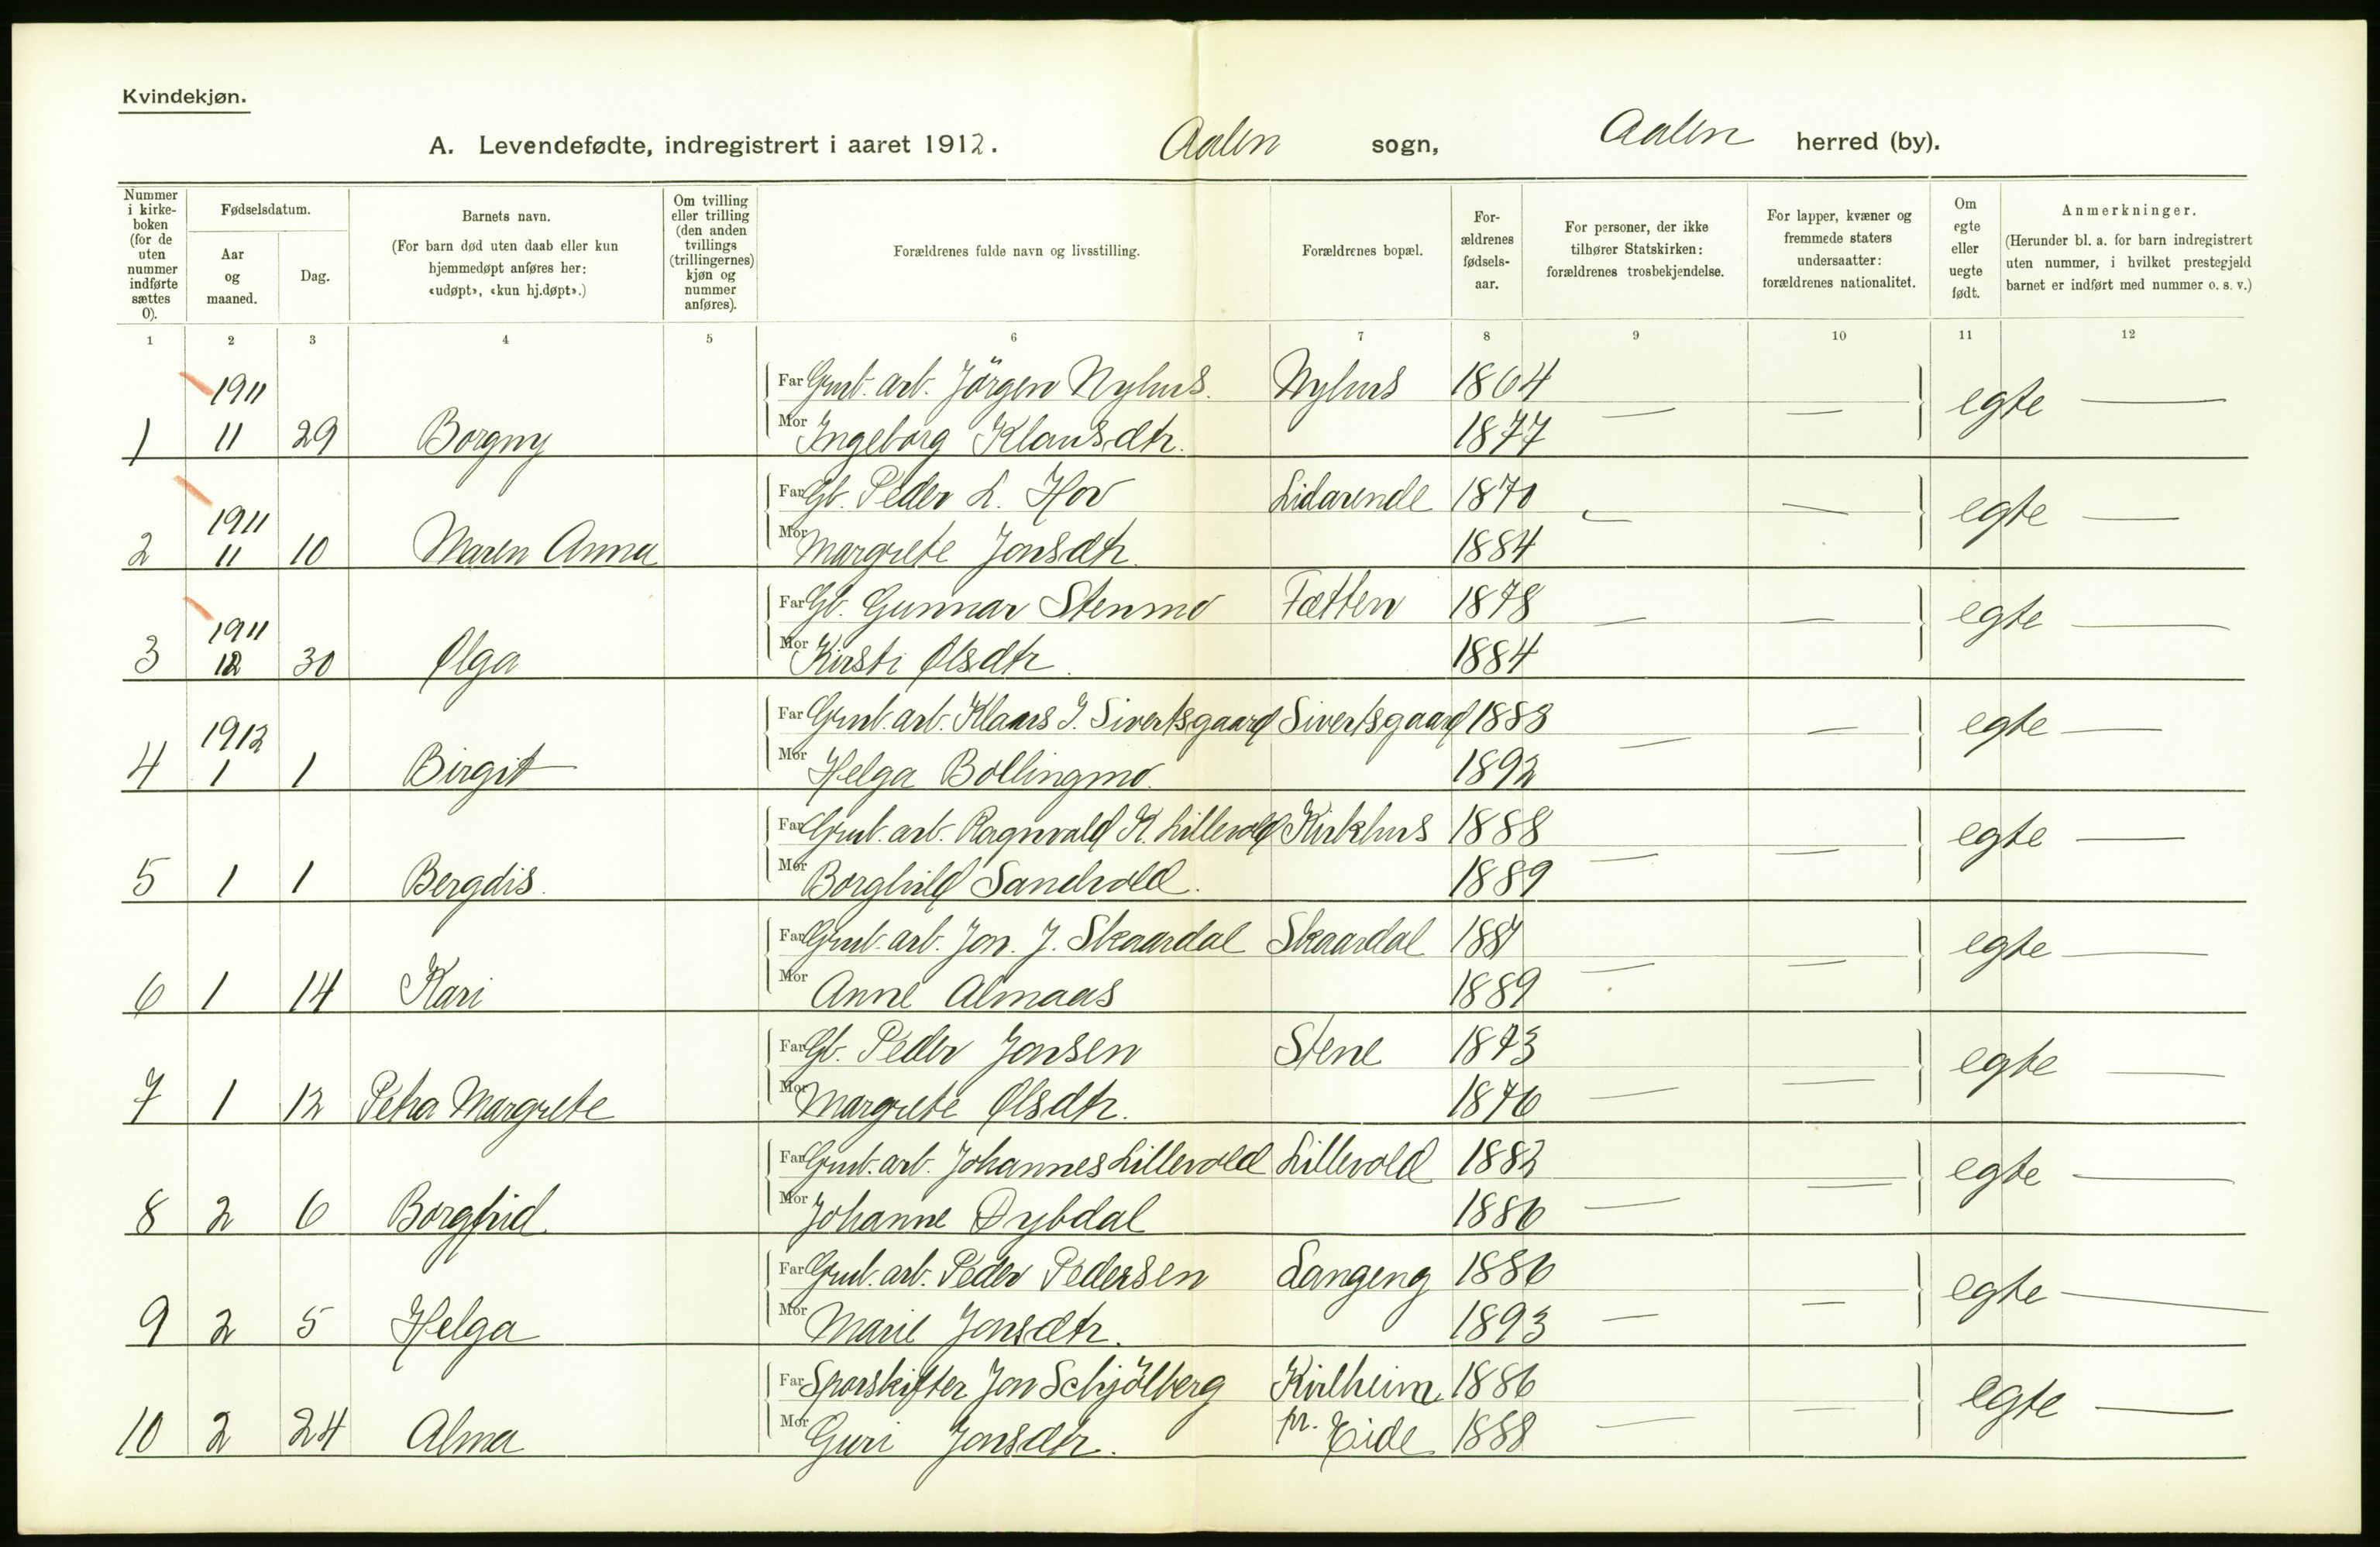 Kvindekjøn.
A. Levendefødte, indregistrert i aaret 1912. Aalen sogn, Aalen herred (by).
Nummer i kirke-boken (for de uten nummer indførte sættes 0).
Fødselsdatum.
Aar og maaned.
Dag.
Barnets navn.
(For barn død uten daab eller kun hjemmedøpt anføres her: «udøpt», «kun hj.døpt».)
Om tvilling eller trilling (den anden tvillings (trillingernes) kjøn og nummer anføres).
Forældrenes fulde navn og livsstilling.
Forældrenes bopæl.
For-ældrenes fødsels-aar.
For personer, der ikke tilhører Statskirken: forældrenes trosbekjendelse.
For lapper, kvæner og fremmede staters undersaatter: forældrenes nationalitet.
Om egte eller uegte født.
Anmerkninger.
(Herunder bl. a. for barn indregistrert uten nummer, i hvilket prestegjeld barnet er indført med nummer o. s. v.)
1 2 3 4 5 6 7 8 9 10 11 12
1911 Far Grub. arb. Jörgen Nyhus. Nyhus 1864 — — egte —
1 11 29 Borgny Mor Ingeborg Klausdtr. 1877
1911 Far Gb. Peder L. Hov Lidarende 1870 — — egte —
2 11 10 Maren Anna Mor Margrete Jonsdtr. 1884
1911 Far Gb. Gunnar Stenmo Tætten 1878 — — egte —
3 12 30 Olga Mor Kirsti Olsdtr. 1884
1912 Far Grub. arb. Klaus J. Sivertsgaard Sivertsgaard 1888 — — egte —
4 1 1 Birgit Mor Helga Bollingmo. 1892
Far Grub. arb. Ragnvald K. Lillevold Kirkhus 1888 — — egte —
5 1 1 Bergdis. Mor Borghild Sandvold. 1889
Far Grub. arb. Jon. J. Skaardal Skaardal 1887 — — egte —
6 1 14 Kari Mor Anne Almaas 1889
Far Gb. Peder Jonsen Stene 1873 — — egte —
7 1 12 Petra Margrete Mor Margrete Olsdtr. 1876
Far Grub. arb. Johannes Lillevold Lillevold 1882 — — egte —
8 2 6 Borgfrid Mor Johanne Dybdal 1886
Far Grub. arb. Peder Pedersen Langeng 1886 — — egte —
9 2 5 Helga Mor Marie Jonsdtr. 1893
Far Sporskifter Jon Schjölberg Kirlheim 1886 — — egte —
10 2 24 Alma Mor Guri Jonsdtr. pr. Eide 1888